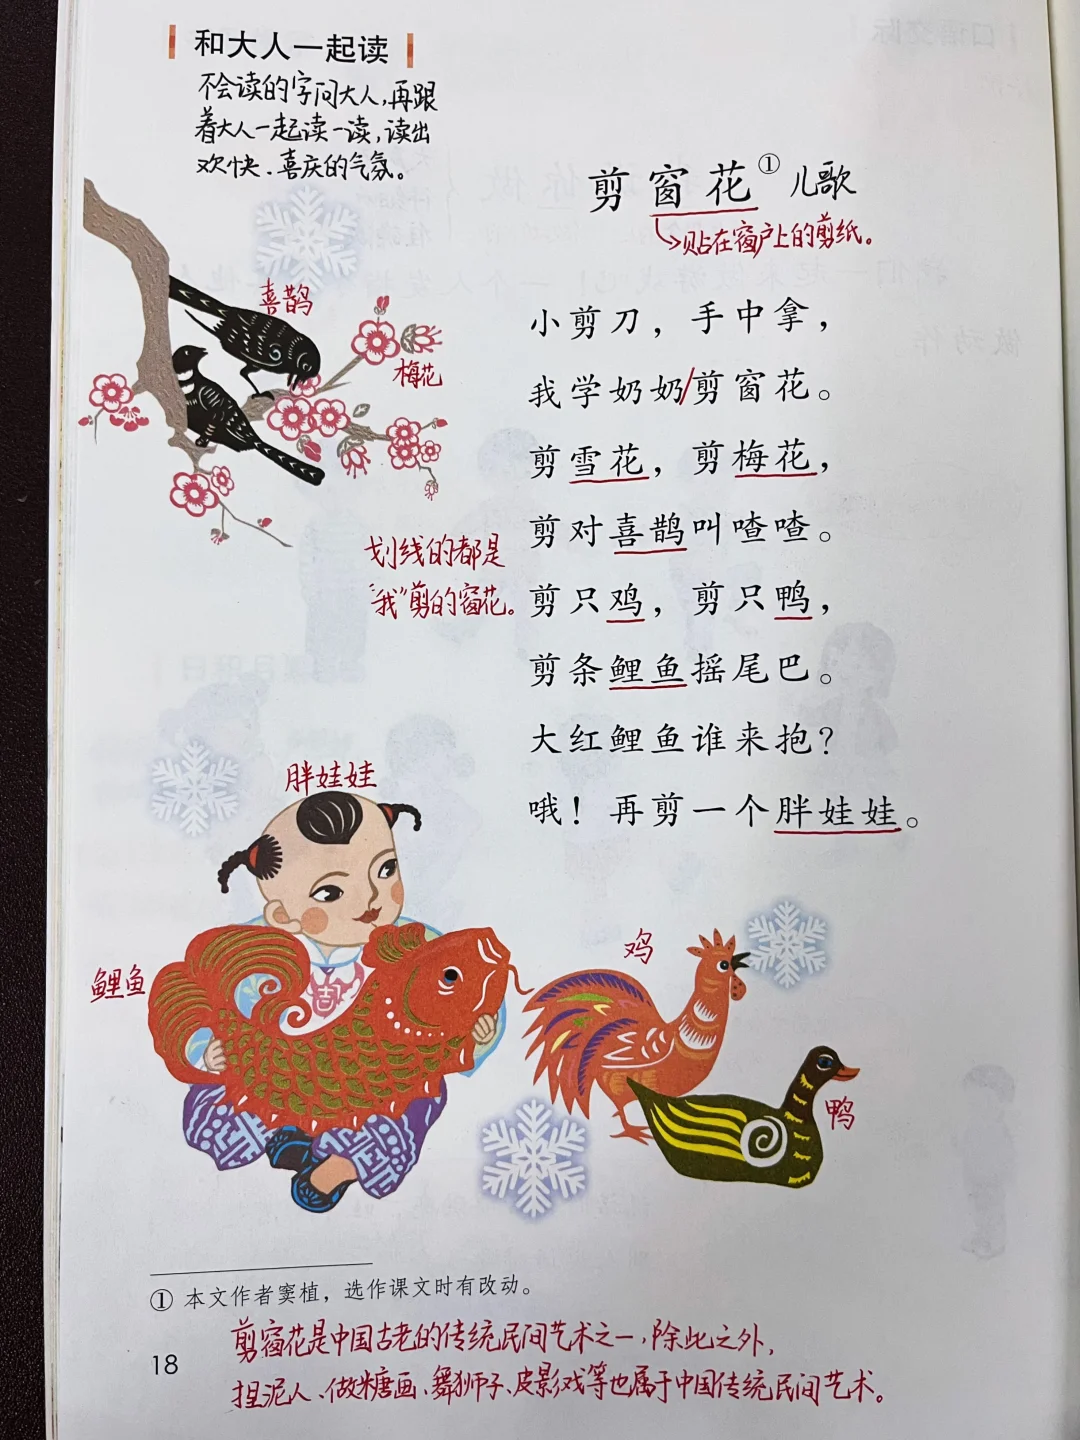 和大人一起读
不会读的字问大人,再跟
着大人一起读一读,读出
欢快、喜庆的气氛。
剪窗花① 儿歌
贴在窗户上的剪纸。
喜鹊
梅花
小剪刀，手中拿，
我学奶奶/剪窗花。
剪雪花，剪梅花，
剪对喜鹊叫喳喳。
划线的都是
“我”剪的窗花。
剪只鸡，剪只鸭，
剪条鲤鱼摇尾巴。
大红鲤鱼谁来抱？
哦！再剪一个胖娃娃。
胖娃娃
鲤鱼
鸡
鸭
① 本文作者窦植，选作课文时有改动。
剪窗花是中国古老的传统民间艺术之一,除此之外,
捏泥人、做糖画、舞狮子、皮影戏等也属于中国传统民间艺术。
18